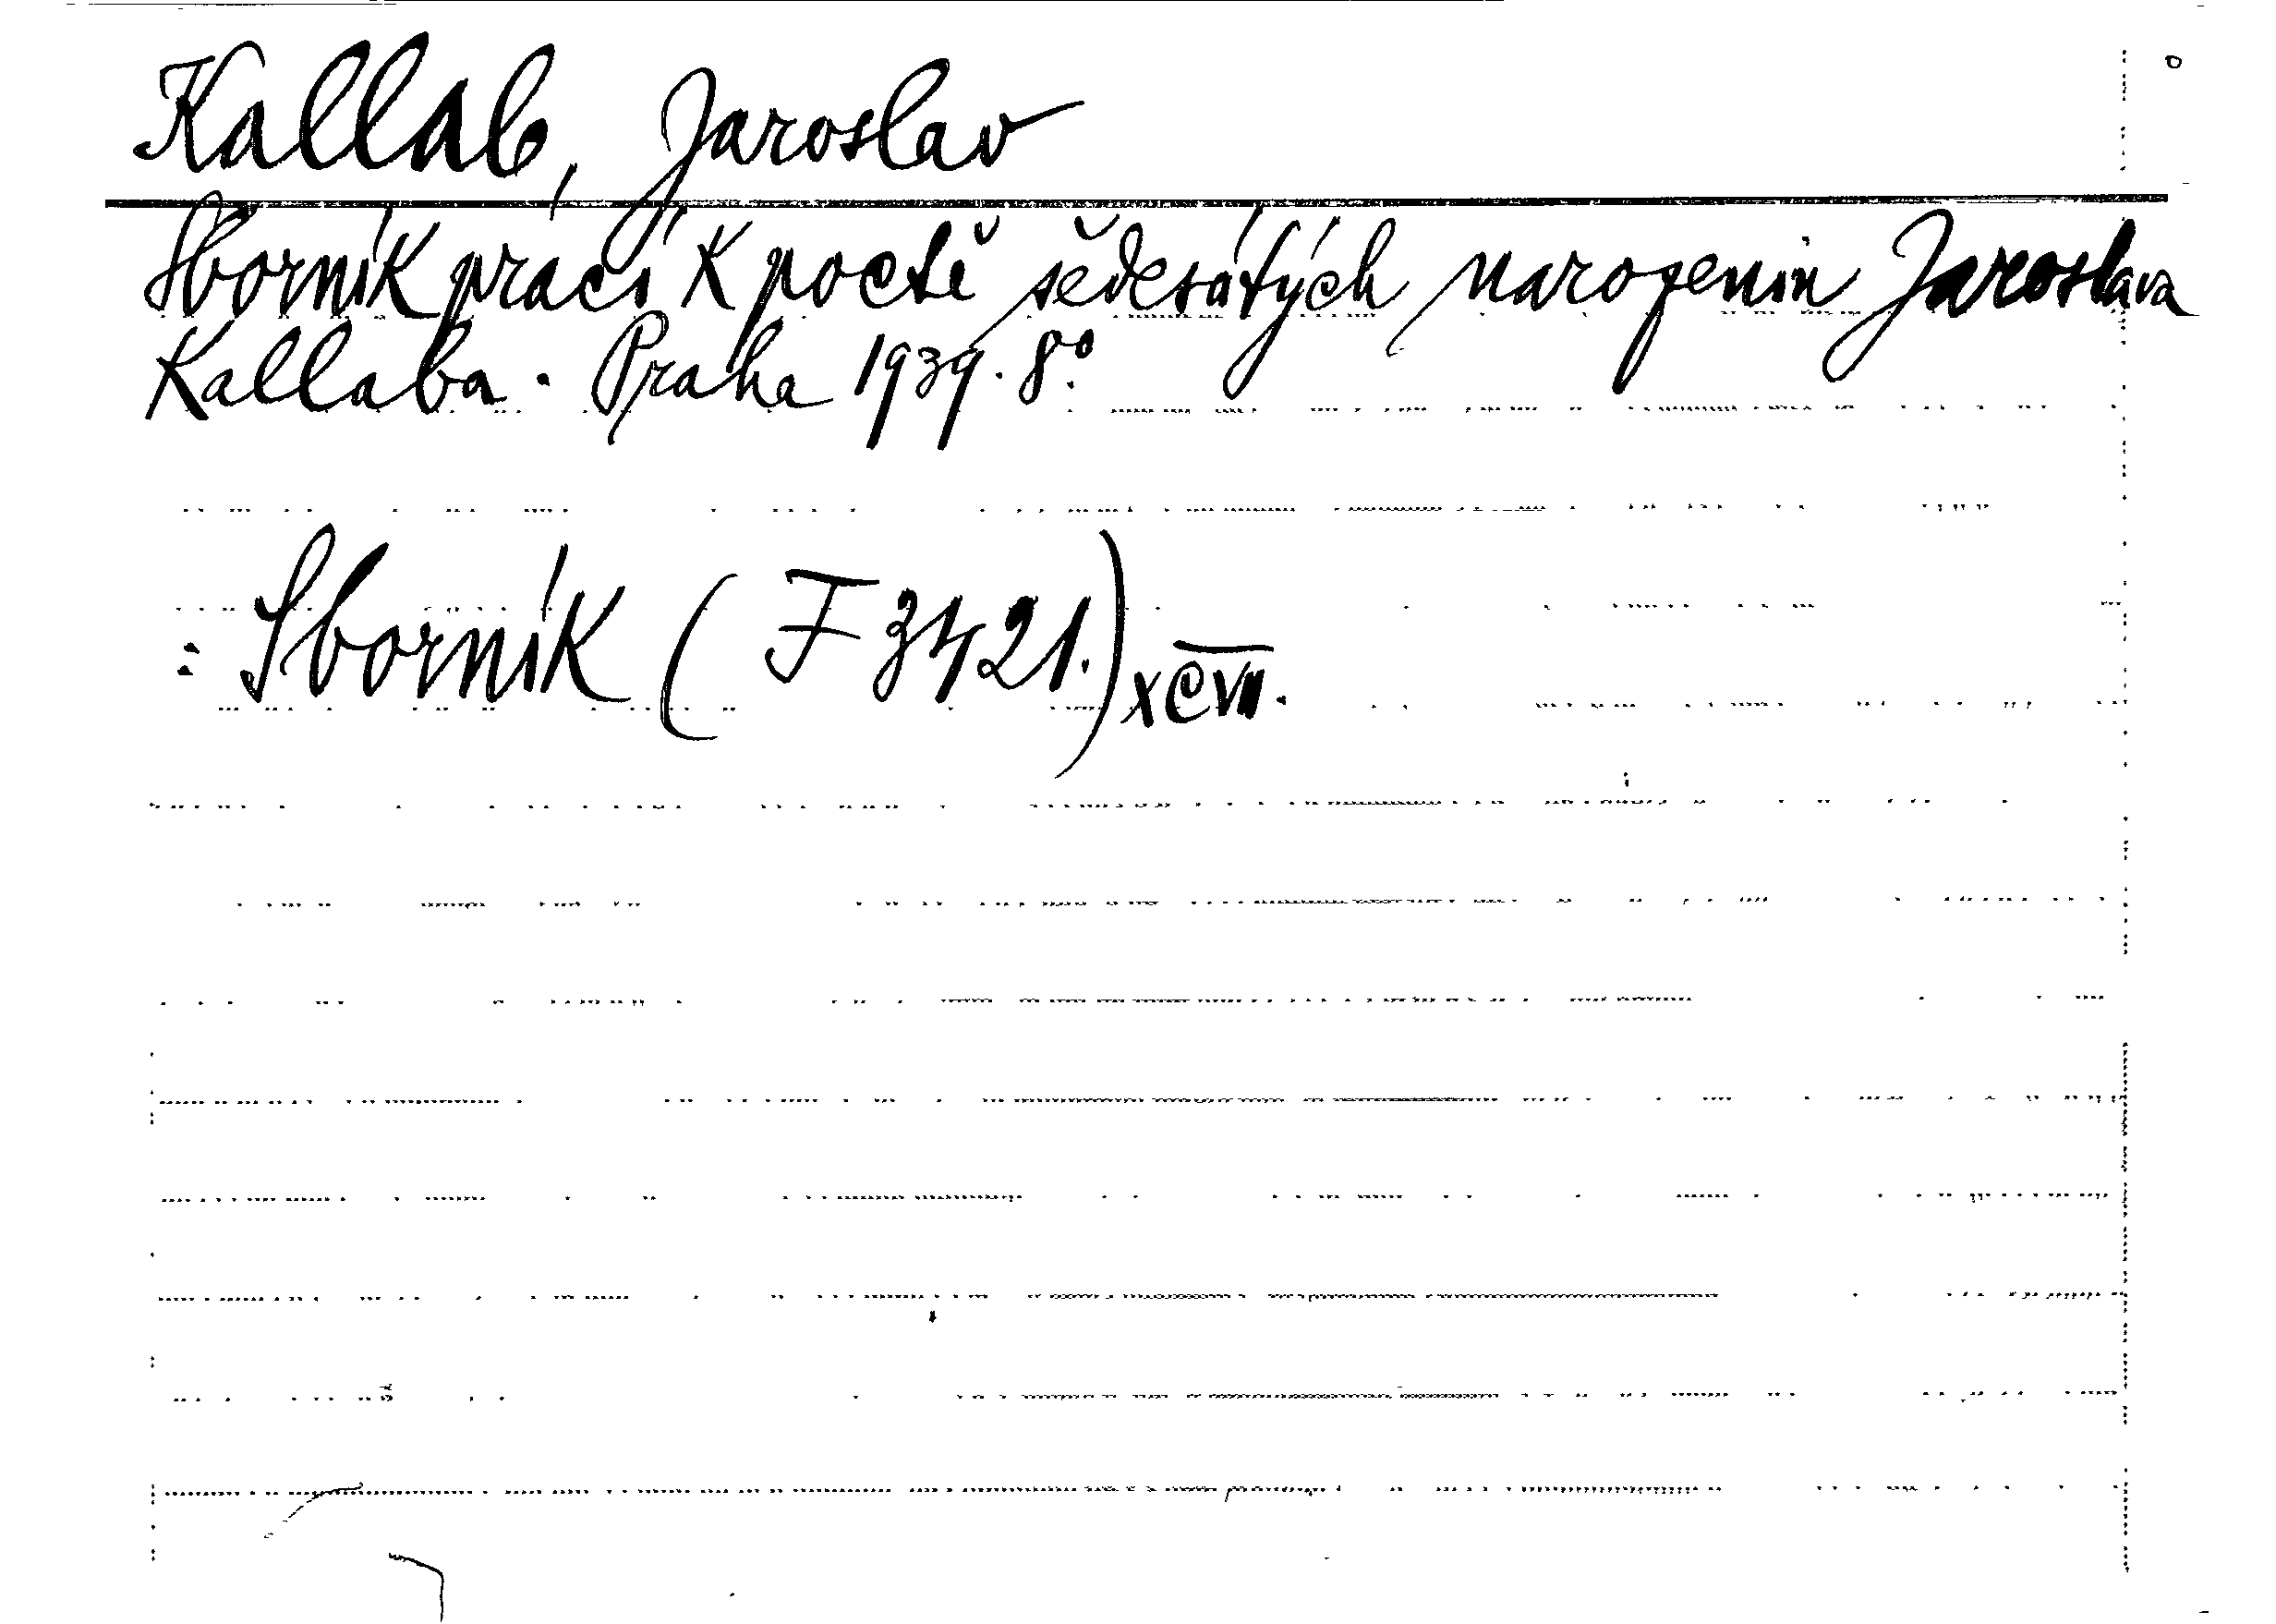 Kallab, Jaroslav
Sborník prací k poctě šedesátých narozenin Jaroslava
Kallaba. Praha 1939. 8°.
: Sborník (F 3421.) XCVII.